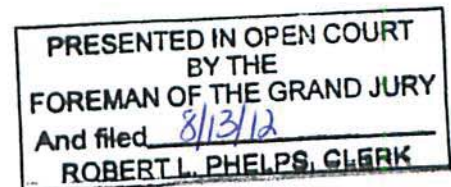 PRESENTED IN OPEN COURT
BY THE
FOREMAN OF THE GRAND JURY
And filed 8/13/12
ROBERT L. PHELPS, CLERK